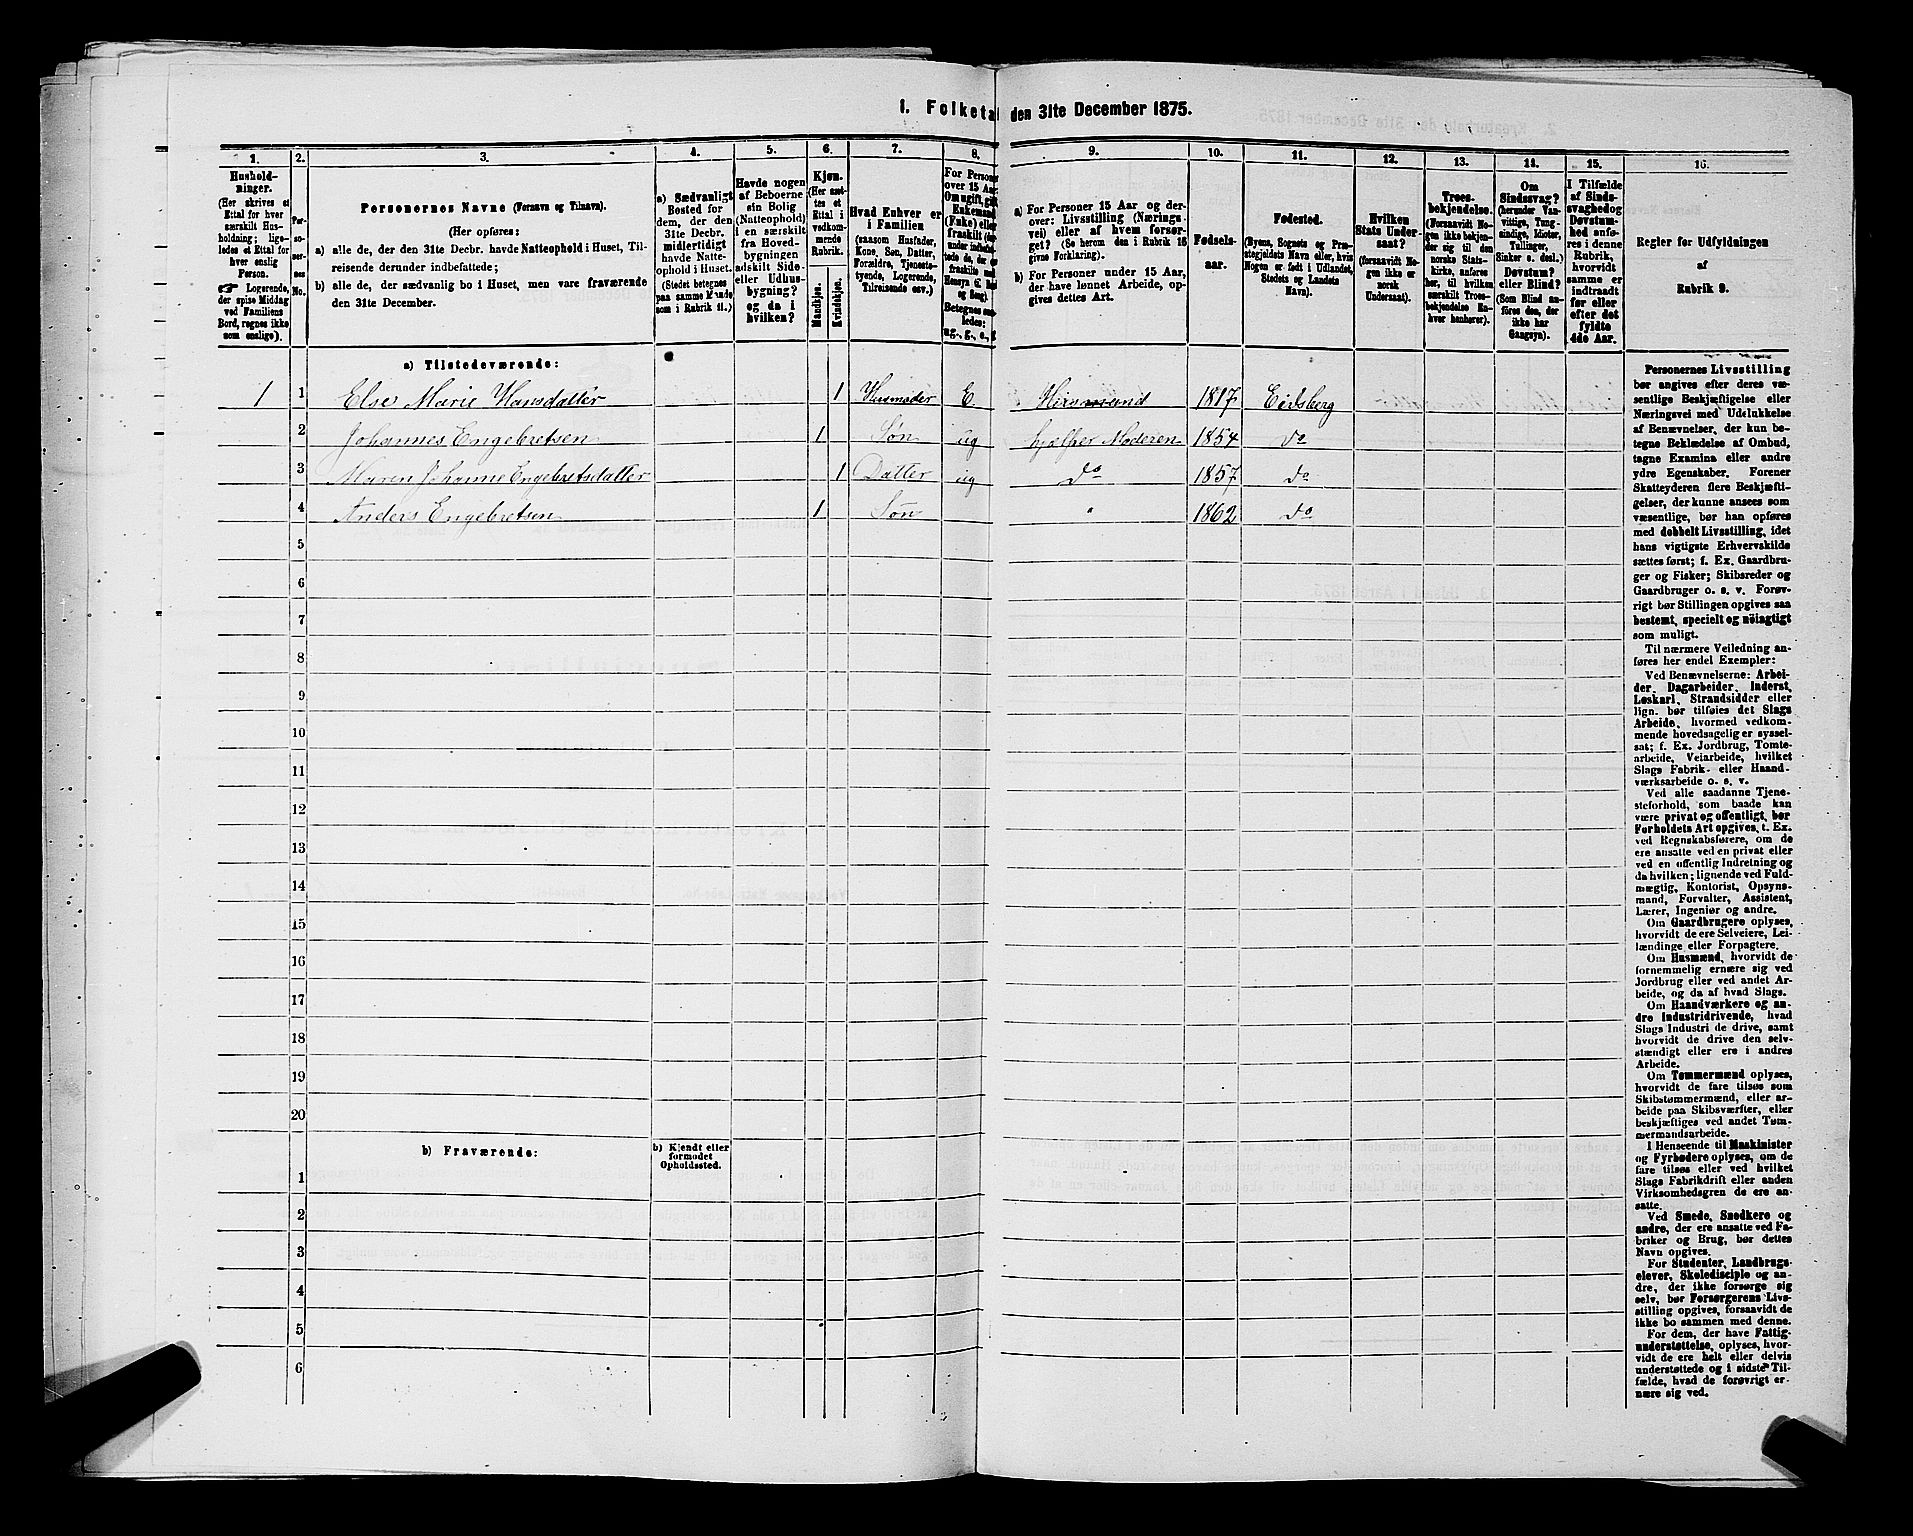 1. Folketal den 31te December 1875.
1. 2. 3. 4. 5. 6. 7. 8. 9. 10. 11. 12. 13. 14. 15. 16.
Hushold-
ninger.
(Her skrives et
Ettal for hver
særskilt Hus-
holdning; lige-
ledes et Ettal for
hver enslig
Person.
☛ Logerende,
der spise Middag
ved Familiens
Bord, regnes ikke
som enslige).
Per-
so-
ner-
nes
No.
Personernes Navne (Fornavn og Tilnavn).
(Her opføres:
a) alle de, der den 31te Decbr. havde Natteophold i Huset, Til-
reisende derunder indbefattede;
b) alle de, der sædvanlig bo i Huset, men vare fraværende
den 31te December.
a) Sædvanligt
Bosted for
dem, der den
31te Decbr.
midlertidigt
havde Natte-
ophold i Huset.
(Stedet betegnes
paa samme Maade
som i Rubrik 11.)
Havde nogen
af Beboerne
sin Bolig
(Natteophold)
i en særskilt
fra Hoved-
bygningen
adskilt Side-
eller Udhus-
bygning?
og da i
hvilken?
Kjøn.
(Her sæt-
tes et
Ettal i
vedkom-
mende
Rubrik.
Mandkjøn.
Kvindekjøn.
Hvad Enhver er
i Familien
(saasom Husfader,
Kone, Søn, Datter,
Forældre, Tjeneste-
tyende, Logerende,
Tilreisende osv.)
For Personer
over 15 Aar:
Om ugift, gift,
Enkemand
(Enke) eller
fraskilt
Betegnes saa-
ledes:
ug., g., e., f.
a) For Personer 15 Aar og der-
over: Livsstilling (Nærings-
vei) eller af hvem forsør-
get? (Se herom den i Rubrik 16
givne Forklaring).
b) For Personer under 15 Aar,
der have lønnet Arbeide, op-
gives dettes Art.
Fødsels-
aar.
Fødested.
(Byens, Sognets og Præ-
stegjeldets Navn eller, hvis
Nogen er født i Udlandet,
Stedets og Landets
Navn).
Hvilken
Stats Under-
saat?
(forsaavidt No-
gen ikke er
norsk
Undersaat).
Troes-
bekjendelse.
(Forsaavidt No-
gen ikke bekjen-
der sig til den
norske Stats-
kirke, anføres
her, til hvilken
særskilt Troes-
bekjendelse En-
hver henhører).
Om
Sindssvag?
(herunder Van-
vittige, Tung-
sindige, Idioter,
Tullinger,
Sinker o. desl.)
Døvstum?
eller Blind?
(Som Blind an-
føres den, der
ikke har
Gangsyn).
I Tilfælde
af Sinds-
svaghed og
Døvstum-
hed anfø-
res i denne
Rubrik,
hvorvidt
samme er
indtraadt
før eller
efter det
fyldte
4de Aar.
Regler for Udfyldningen
af
Rubrik 9.
a) Tilstedeværende:
1 1 Else Marie Hansdatter 1 Husmoder E. 1817 Eidsberg
2 Johannes Engebretsen 1 Søn ug hjælper Moderen 1854 do
3 Maren Johanne Engebretsdatter 1 Datter ug do 1857 do
4 Anders Engebretsen 1 Søn " 1862 do
5
6
7
8
9
10
11
12
13
14
15
16
17
18
19
20
b) Fraværende:
b) Kjendt eller
formodet
Opholdssted.
1
2
3
4
5
6
Personernes Livsstilling
bør angives efter deres væ-
sentlige Beskjæftigelse eller
Næringsvei med Udelukkelse
af Benævnelser, der kun be-
tegne Beklædelse af Ombud,
tagne Examina eller andre
ydre Egenskaber. Forener
Skatteyderen flere Beskjæfti-
gelser, der kunne ansees som
væsentlige, bør han opføres
med dobbelt Livsstilling, idet
hans vigtigste Erhvervskilde
sættes først; f. Ex. Gaardbru-
ger og Fisker; Skibsreder og
Gaardbruger o. s. v. Forøv-
rigt bør Stillingen opgives saa
bestemt, specielt og nöiagtigt
som muligt.
Til nærmere Veiledning an-
føres her endel Exempler:
Ved Benævnelserne: Arbei-
der, Dagarbeider, Inderst,
Løskarl, Strandsidder eller
lign. bør tilføies det Slags
Arbeide, hvormed vedkom-
mende hovedsagelig er syssel-
sat; f. Ex. Jordbrug, Tomte-
arbeide, Veiarbeide, hvilket
Slags Fabrik- eller Haand-
værksarbeide o. s. v.
Ved alle saadanne Tjene-
steforhold, som baade kan
være privat og offentligt, bør
Forholdets Art opgives, t. Ex.
ved Regnskabsførere, om de
ere ansatte ved en privat eller
ved en offentlig Indretning og
da hvilken; lignende ved Fuld-
mægtig, Kontorist, Opsyns-
mand, Forvalter, Assistent,
Lærer, Ingeniør og andre.
Om Gaardbrugere oplyses,
hvorvidt de ere Selveiere, Lei-
lændinge eller Forpagtere.
Om Husmænd, hvorvidt de
fornemmelig ernære sig ved
Jordbrug eller ved andet Ar-
beide, og da af hvad Slags.
Om Haandværkere og an-
dre Industridrivende, hvad
Slags Industri de drive, samt
hvorvidt de drive den selv-
stændigt eller ere i andres
Arbeide.
Om Tømmermænd oplyses,
hvorvidt de fare tilsøs som
Skibstømmermænd, eller ar-
beide paa Skibsværfter, eller
beskjæftiges ved andet Tøm-
mermandsarbeide.
I Henseende til Maskinister
og Fyrbødere oplyses, om de
fare tilsøs eller ved hvilket
Slags Fabrikdrift eller anden
Virksomhedsgren de ere an-
satte.
Ved Smede, Snedkere og
andre, der ere ansatte ved Fa-
briker og Brug, bør dettes
Navn opgives.
For Studenter, Landbrugs-
elever, Skoledisciple og an-
dre, der ikke forsørge sig
selv, bør Forsørgerens Livs-
stilling opgives, forsaavidt de
ikke bo sammen med denne.
For dem, der have Fattig-
understøttelse, oplyses, hvor-
vidt de ere helt eller delvis
understøttede og i sidste Til-
fælde, hvad de forøvrigt er-
nære sig ved.